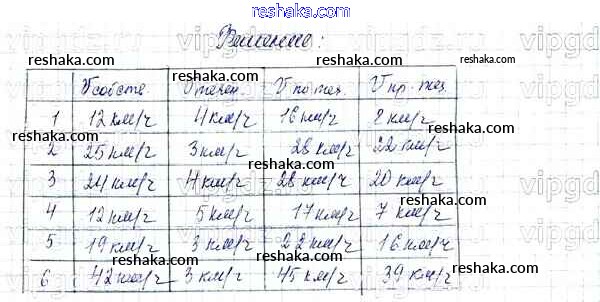 reshaka.com
Решение:
reshaka.com reshaka.com
V собств. V течен. V по теч. V пр. теч.
1 12 км/ч 4 км/ч 16 км/ч 8 км/ч
reshaka.com
2 25 км/ч 3 км/ч 28 км/ч 22 км/ч
reshaka.com reshaka.com
3 24 км/ч 4 км/ч 28 км/ч 20 км/ч
4 12 км/ч 5 км/ч 17 км/ч 7 км/ч
reshaka.com reshaka.com
5 19 км/ч 3 км/ч 22 км/ч 16 км/ч
reshaka.com
6 42 км/ч 3 км/ч 45 км/ч 39 км/ч
reshaka.com